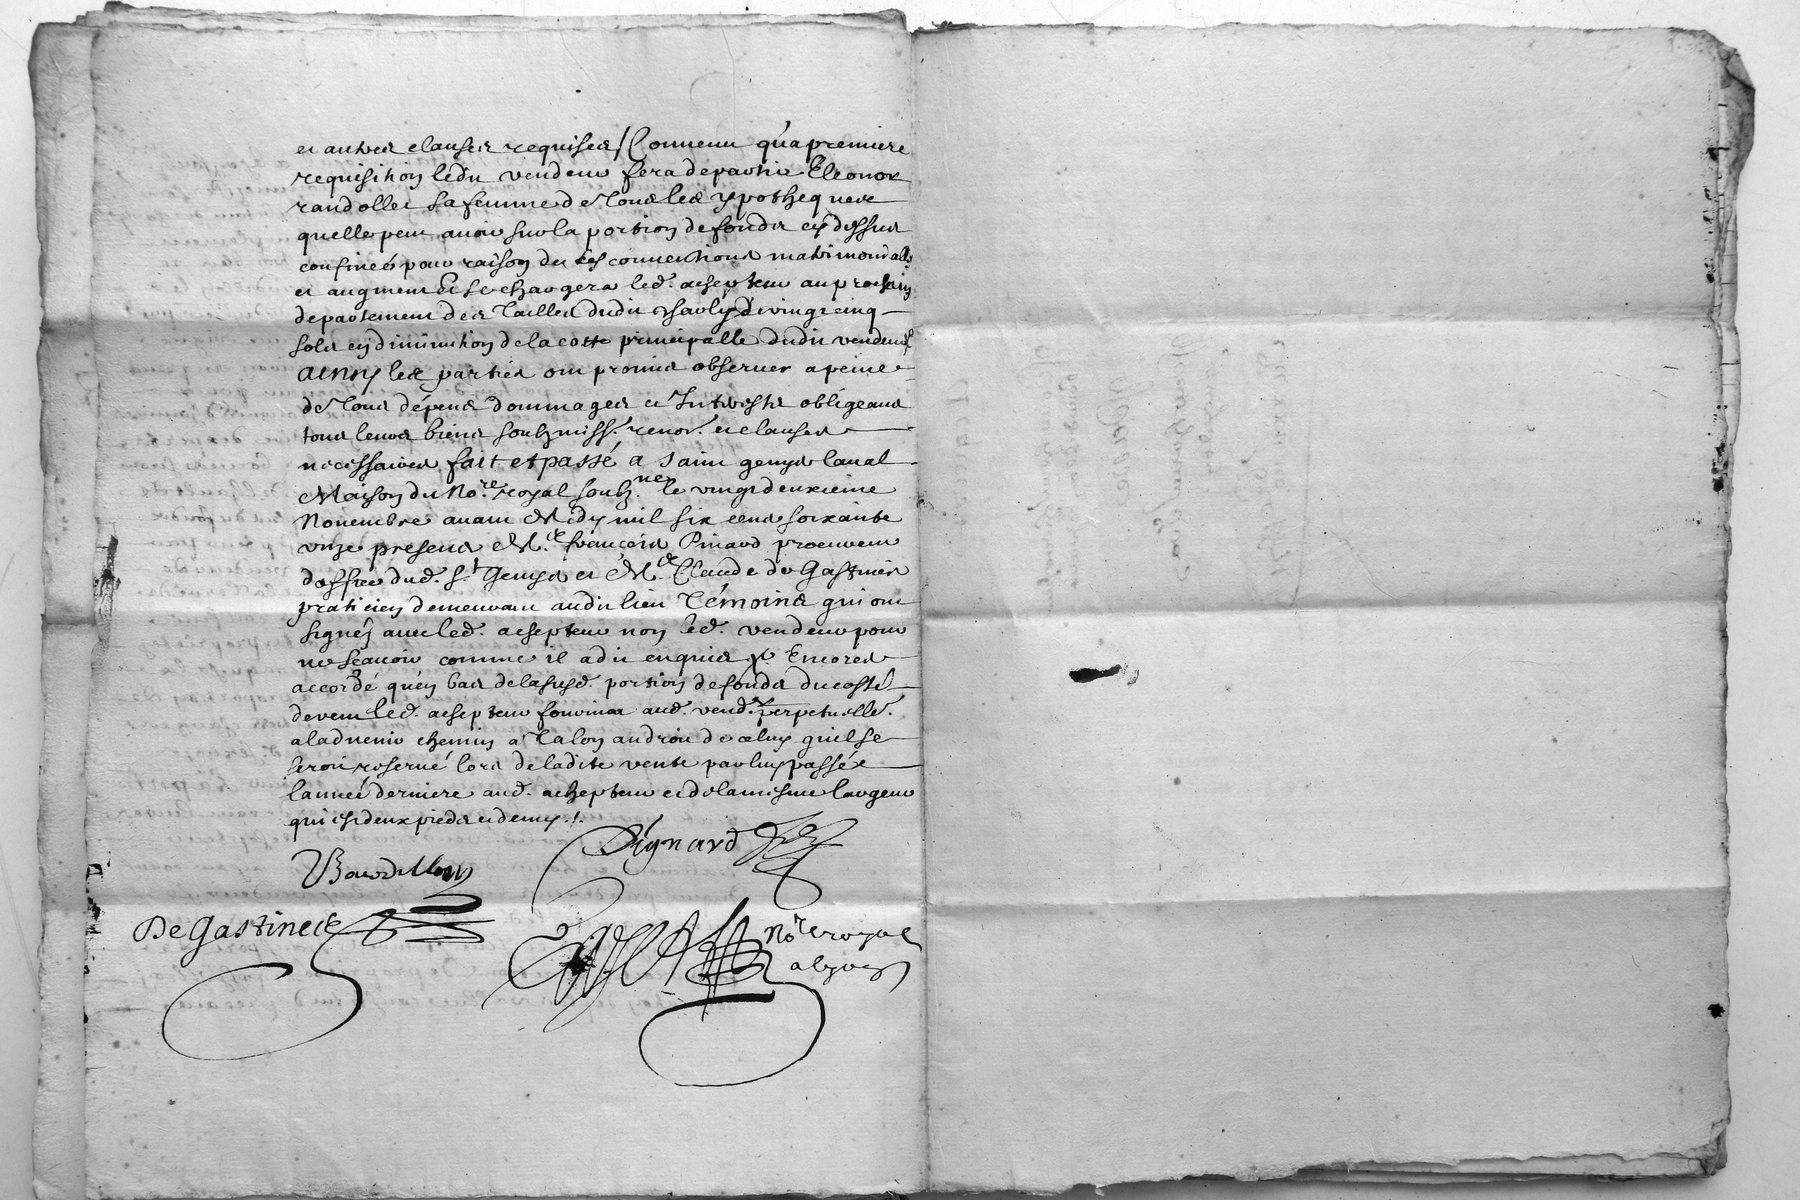 et autres clauses requises / Convenu qua premiere
requisition ledit vendeur fera departir Eleonor
randollet sa femme de Tous les ypotheques
quelle peut avoir sur la portion de fonds cy dessus
confinée pour raison de ses conventions matrimonialles
et augment Et se chargera led. achepteur au prochain
departement des Tailles dudit de vingt cinq
sols en diminution de la cotte principalle dudit vendeur
ainsy les parties ont promis observer a peine
de Tous dépens dommages et Interests obligeans
tous leurs biens soubzmiss. renon. et clauses
necessaires fait et passé a saint genys laval
Maison du No.re royal soubz.né le vingt deuxieme
Novembre avant Midy mil six cens soixante
unze presens M.e françois Pinard procureur
doffice dud. S.t Genys et M.e Claude de Gastines
praticien demeurant audit lieu Témoins qui ont
signéz avec led. achepteur non led. vendeur pour
ne scavoir comme il a dit enquis p. Encores
accordé quen bas de la susd. portion de fonds du costé
de vent led. achepteur fournira aud. vend.r perpetuelle.
a ladvenir chemin a Talon au droit de celuy quil se
seroit reservé lors de ladite vente par luy passée
lannée derniere aud. achepteur et de la mesme largeur
qui est deux pieds et demy ./.
Pignard
Bourdillon
De Gastines
No.re royal